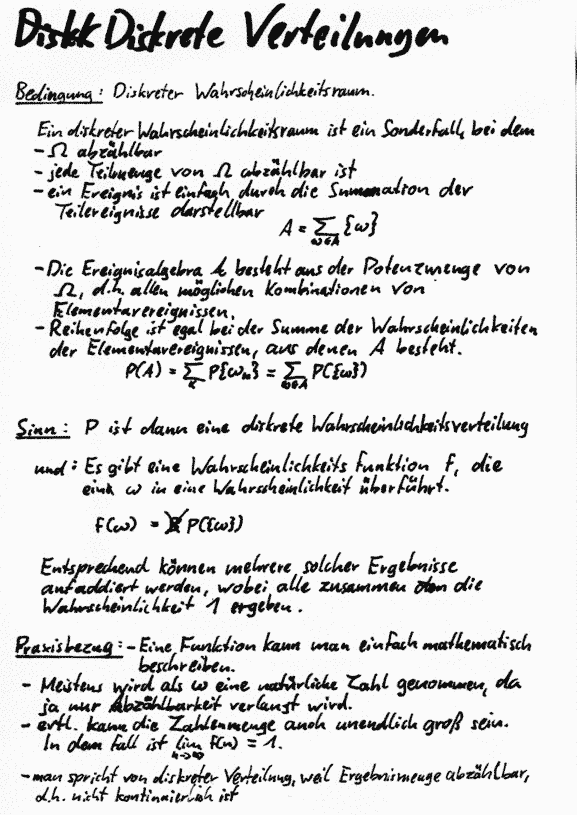 Diskk Diskrete Verteilungen
Bedingung: Diskreter Wahrscheinlichkeitsraum.
Ein diskreter Wahrscheinlichkeitsraum ist ein Sonderfall, bei dem
- Ω abzählbar
- jede Teilmenge von Ω abzählbar ist
- ein Ereignis ist einfach durch die Summation der
Teilereignisse darstellbar
A = ∑_{ω∈A} {ω}
- Die Ereignisalgebra besteht aus der Potenzmenge von
Ω, d.h. allen möglichen Kombinationen von
Elementarereignissen.
- Reihenfolge ist egal bei der Summe der Wahrscheinlichkeiten
der Elementarereignissen, aus denen A besteht.
P(A) = ∑_k P{ω_k} = ∑_{ω∈A} P({ω})
Sinn: P ist dann eine diskrete Wahrscheinlichkeitsverteilung
und: Es gibt eine Wahrscheinlichkeits funktion f, die
ein ω in eine Wahrscheinlichkeit überführt.
f(ω) = P({ω})
Entsprechend können mehrere solcher Ergebnisse
aufaddiert werden, wobei alle zusammen die
Wahrscheinlichkeit 1 ergeben.
Praxisbezug: - Eine Funktion kann man einfach mathematisch
beschreiben.
- Meistens wird als ω eine natürliche Zahl genommen, da
ja nur Abzählbarkeit verlangt wird.
- evtl. kann die Zahlenmenge auch unendlich groß sein.
In dem Fall ist lim_{n→∞} f(n) = 1.
- man spricht von diskreter Verteilung, weil Ergebnismenge abzählbar,
d.h. nicht kontinuierlich ist